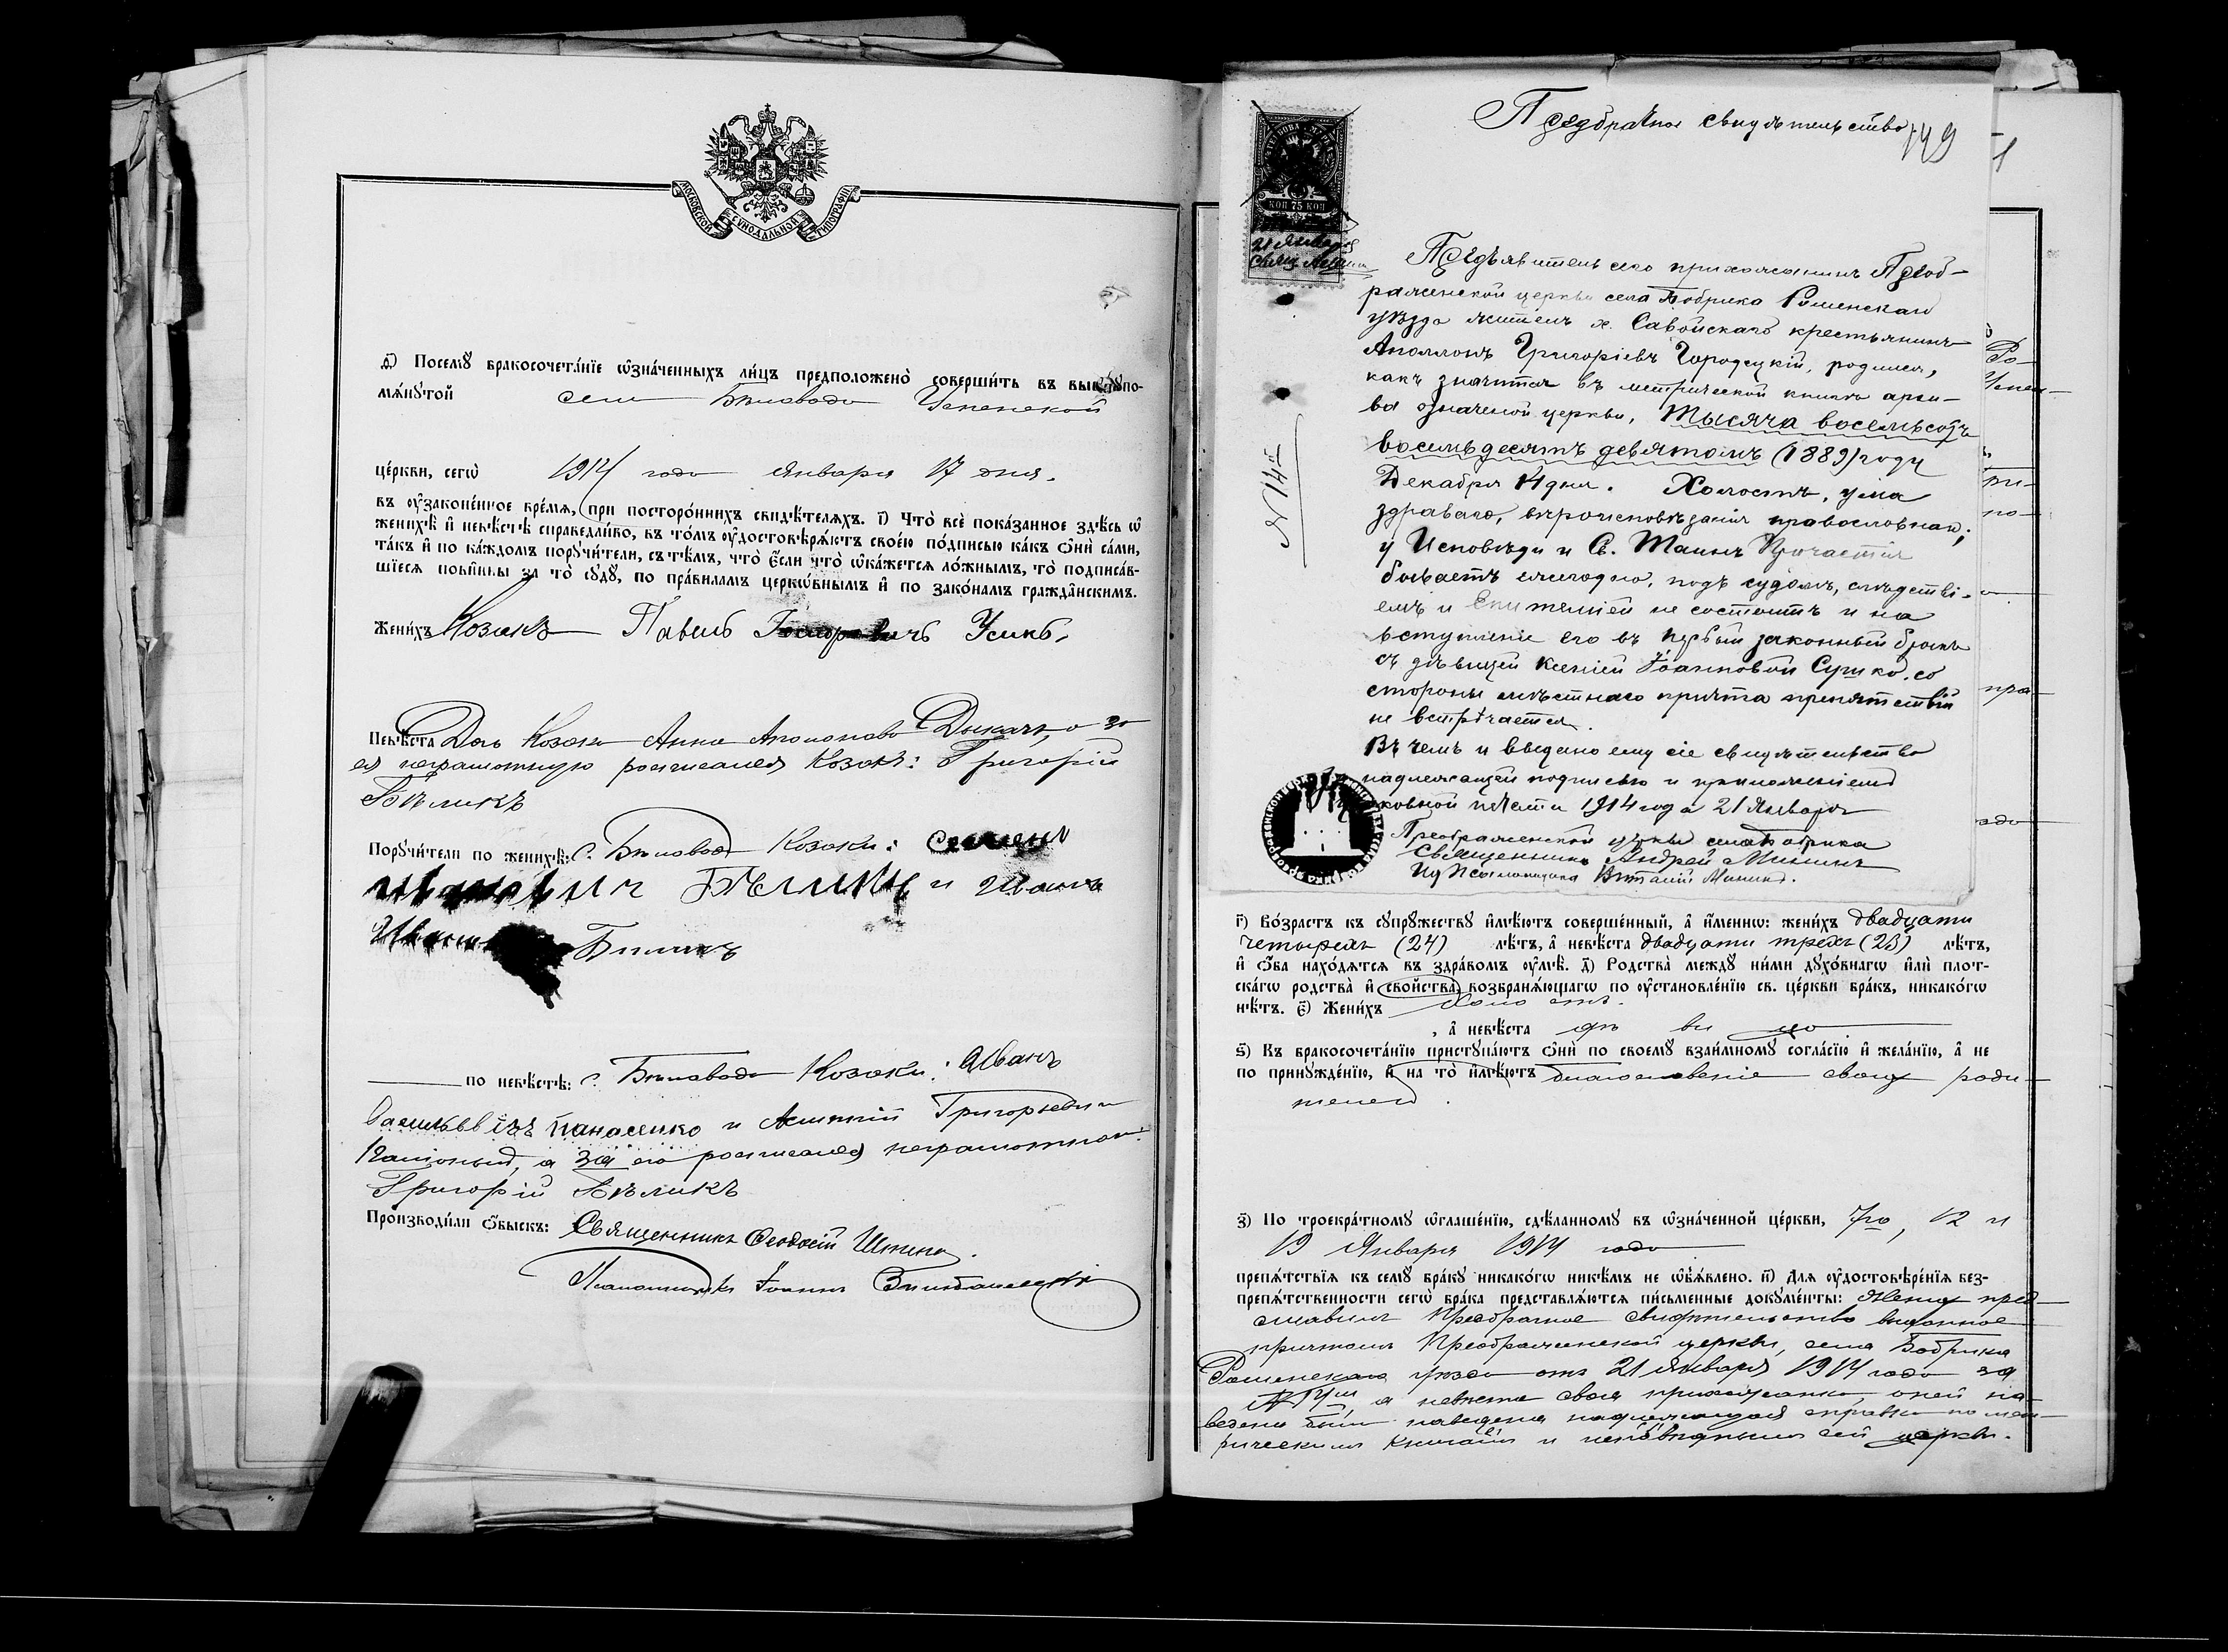 МОСКОВСКОЙ СѴНОДАЛЬНОЙ ТИПОГРАФІИ
ѳ҃) Посемꙋ бракосочета́нїе ѡ҆зна́ченныхъ ли́цъ предположено̀ соверши́ть въ вышеꙋпо-
мѧ́нꙋтой села Бѣловодъ Успенской
це́ркви, сегѡ̀ 1914 года Января 17 дня.
въ ᲂу҆зако́ненное вре́мѧ, при посторо́ннихъ свидѣ́телѧхъ. і҃) Что̀ всѐ пока́занное здѣ́сь ѡ҆
женихѣ̀ и҆ невѣ́стѣ справедли́во, въ то́мъ ᲂу҆достовѣрѧ́ютъ свое́ю по́дписью ка́къ ѻ҆нѝ са́ми,
та́къ и҆ по ка́ждомъ порꙋчи́тели, съ тѣ́мъ, что̀ є҆́сли что̀ ѡ҆ка́жетсѧ ло́жнымъ, то̀ подписа́в-
шїесѧ пови́нны за то̀ сꙋдꙋ̀, по пра́виламъ церко́внымъ и҆ по зако́намъ гражда́нскимъ.
Жени́хъ Козакъ Павелъ Усикъ,
Невѣ́ста Дочь Козака Анна Дыкачъ, а за
ея неграмотную росписался Козакъ: Григорій
Бѣликъ
Порꙋчи́тели по женихѣ̀: с. Бѣловодъ Козаки: Семенъ
Ивановичъ Бѣликъ и Иванъ
Биликъ
по невѣ́стѣ: с. Бѣловодъ Козаки: Иванъ
Васильевичъ Панасенко и Григорьевичъ
а за его росписался неграмотнаго:
Григорій Бѣликъ
Производи́ли ѻ҆́быскъ: Священникъ Ѳеодосій
Псаломщикъ Іоаннъ
Предбрачное свидѣтельство
149
1
КОП 75 КОП
21 Января
Свящ.
№ 14й
Предъявитель сего прихожанинъ Преоб-
раженской церкви села Бобрика Роменскаго
уѣзда житель х. Савойскаго крестьянинъ
Аполлонъ Григоріевъ Городецкій, родился,
какъ значится въ метрической книгѣ архи-
ва означеной церкви, тысяча восемьсотъ
восемьдесятъ девятомъ (1889) году
Декабря 14 дня. Холостъ, ума
здраваго, вѣроисповѣданія православнаго;
у Исповѣди и Св. Таинъ Причастія
бываетъ ежегодно, подъ судомъ, слѣдстві-
емъ и Епитеміей не состоитъ и на
вступленіе его въ первый законный бракъ
съ дѣвицей Ксеніей Іоанновой Сушко, со
стороны мѣстнаго причта препятствій
не встрѣчается.
Въ чемъ и выдано ему сіе свидѣтельство
надлежащей подписью и приложеніемъ
церковной печати 1914 года 21 Января
Преображенской церкви села Бобрика
Священникъ Андрей Мишинъ
Ид Псаломщика Виталій
г҃) Во́зрастъ къ сꙋпрꙋ́жествꙋ и҆мѣ́ютъ соверше́нный, а҆ и҆́меннѡ: жени́хъ двадцати
четырехъ (24) лѣ́тъ, а҆ невѣ́ста двадцати трехъ (23) лѣ́тъ,
и҆ ѻ҆́ба нахо́дѧтсѧ въ здра́вомъ ᲂу҆мѣ̀. д҃) Родства̀ междꙋ̀ ни́ми дꙋхо́внагѡ и҆лѝ пло́т-
скагѡ родства̀ и҆ сво́йства, возбранѧ́ющагѡ по ᲂу҆становле́нїю св. це́ркви бра́къ, никако́гѡ
нѣ́тъ. є҃) Жени́хъ холостъ.
, а҆ невѣ́ста дѣвица
ѕ҃) Къ бракосочета́нїю пристꙋпа́ютъ ѻ҆нѝ по своемꙋ̀ взаи́мномꙋ согла́сїю и҆ жела́нїю, а҆ не
по принꙋжде́нїю, и҆ на то̀ и҆мѣ́ютъ благословеніе своихъ роди-
телей.
з҃) По троекра́тномꙋ ѡ҆глаше́нїю, сдѣ́ланномꙋ въ ѡ҆зна́ченной це́ркви, 7го, 12 и
19 Января 1914 года
препѧ́тствїѧ къ семꙋ̀ бра́кꙋ никако́гѡ никѣ́мъ не ѡ҆б̾ѧ́влено. и҃) Длѧ ᲂу҆достовѣре́нїѧ без-
препѧ́тственности сегѡ̀ бра́ка представлѧ́ютсѧ пи́сьменные докꙋме́нты: Женихъ пред-
ставилъ Предбрачное свидѣтельство выданное
причтомъ Преображенской церкви, села Бобрика
Роменскаго уѣзда отъ 21 Января 1914 года за
№ 14м, а невѣста своя прихожанка, о ней на-
ведена была наведена надлежащая справка по мет-
рическимъ книгамъ и исповѣднымъ сей церкви.